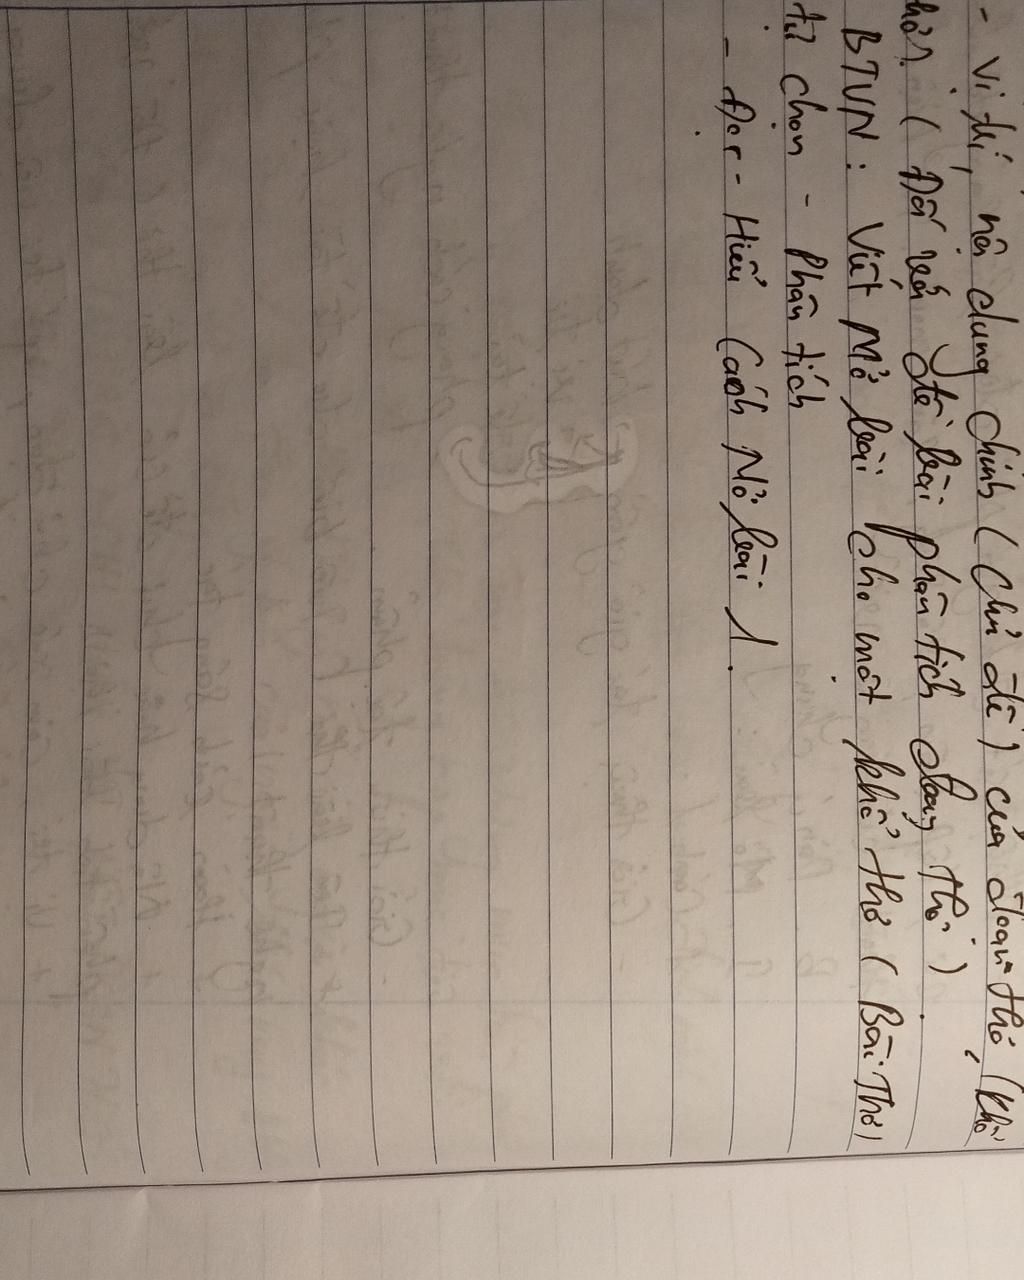 - Vị trí, nội dung chính (chủ đề) của đoạn thơ (khổ
thơ). (Đối với đề bài phân tích đoạn thơ).
BTVN: Viết Mở bài cho một khổ thơ (Bài Thơ)
tự chọn - Phân tích
- Đọc - Hiểu Cách Mở bài 1.